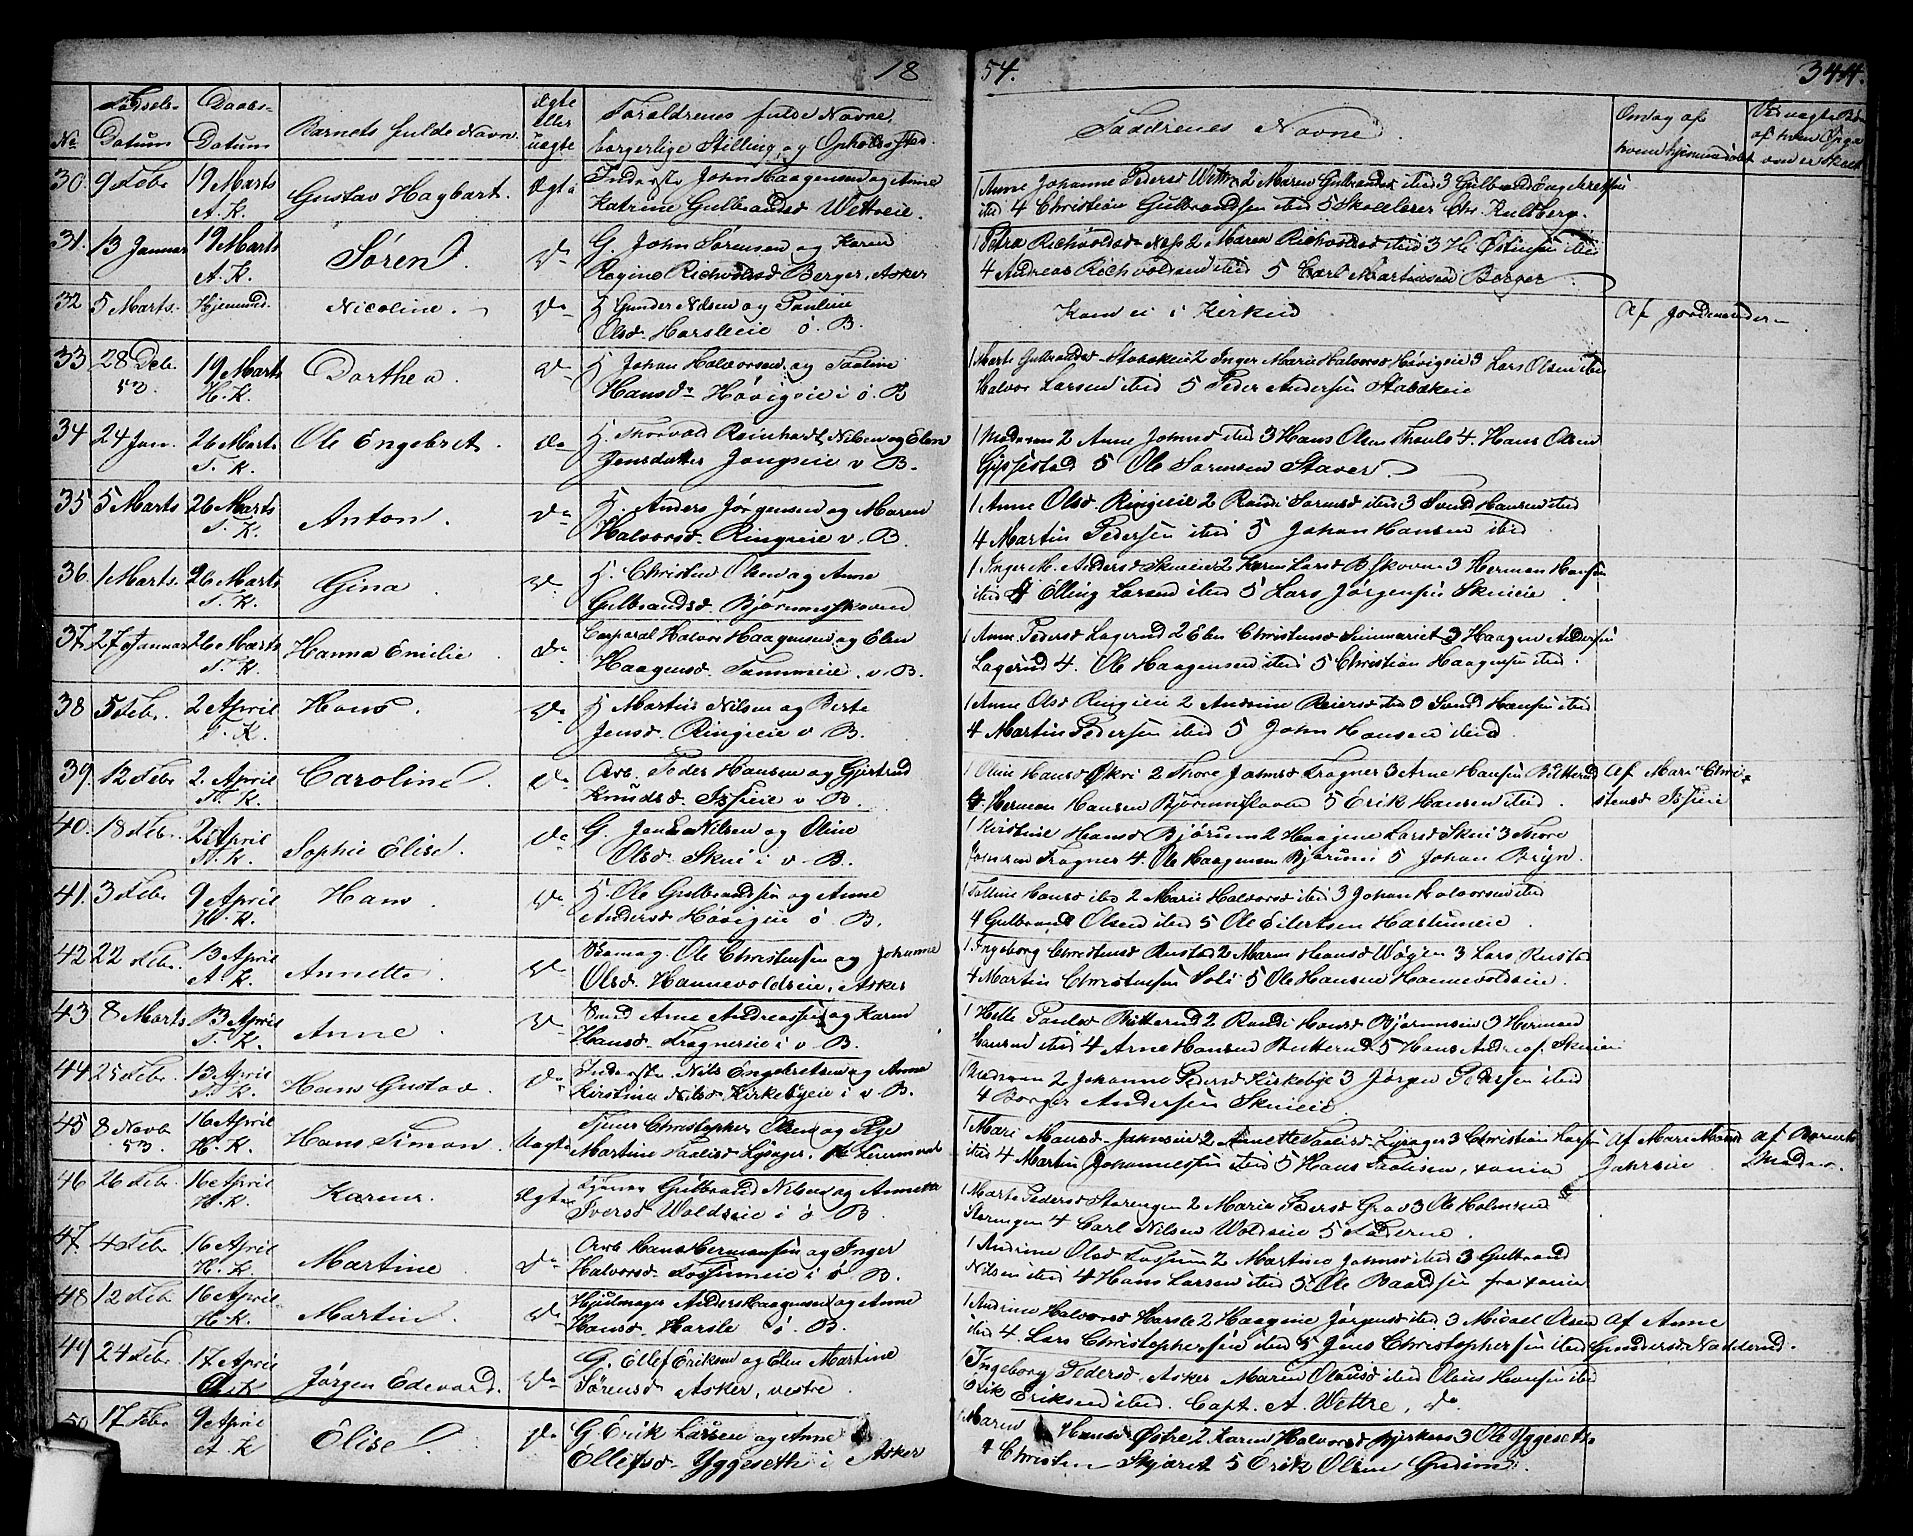 18
54.
344.
No
Fødsels-
Datum
Daabs-
Datum
Barnets fulde Navn.
Ægte
eller
uægte
Forældrenes fulde Navne,
borgerlige Stilling og Opholdssted.
Faddrenes Navne.
Om dag af
hvem hjemmedøbt
30. 9 Febr. 19 Marts A.K. Gustav Hagbart. Ægte Inderste John Haagensen og Anne
Katrine Gulbrandsd Wettreie.
1 Anne Johanne Pedersd Wettre 2 Maren Gulbrandsd ibid 3 Gulbrand Engebretsen
ibid 4 Christian Gulbrandsen ibid 5 Skolelærer Chr. Kultberg.
31. 13 Januar 19 Marts A.K. Søren. Do G. John Sørensen og Karen
Regine Richvoldsd Berger, Asker
1 Petra Richvoldsd Næss 2 Maren Richvoldsd ibid 3 H. Østensen ibid
4 Andreas Richvoldsen ibid 5 Carl Martinsen Berger.
32 5 Marts. Hjemmed. Nicoline. Do H Gunder Nilsen og Pauline
Olsd. Harsleeie ø. B.
Kom ei i Kirken
Af Jordemoderen
33 28 Deb. 53. 19 Marts H.K. Dorthea. Do H. Johan Halvorsen og Pauline
Hansdr Høvigeie i ø. B
1 Marte Gulbrandsd Stabækeie 2 Inger Marie Halvorsd Høvigeie 3 Lars Olsen ibid
Halvor Larsen ibid 5 Peder Andersen Stabækeie
34 24 Jan. 26 Marts T.K. Ole Engebret. do H. Thorvald Reinhardt Nilsen og Elen
Jensdatter Jongseie v B.
1 Moderen 2 Anne Johnsd ibid 3 Hans Olsen 4. Hans Olsen
Gjssestad 5 Ole Sørensen Staver.
35 5 Marts 26 Marts T.K. Anton. Do H. Anders Jørgensen og Maren
Halvorsd. Ringieie v. B.
1 Anne Olsd Ringieie 2 Randi ibid 3 Svend Hansen ibid
4 Martin Pedersen ibid 5 Johan Hansen ibid.
36. 1 Marts. 26 Marts T.K. Gina. Do H. Christen Olsen og Anne
Gulbrandsd. Bjørnesskoven
1 Inger M. Andersd Skuieie 2 Karen Larsd B.skoven 3 Herman Hansen
ibid 4 Elling Larsen ibid 5 Lars Jørgensen Skuieie.
37. 27 Januar 26 Marts T.K. Hanna Emilie. do Corporal Halvor Haagensen og Elen
Haagensd. Tanumseie. v. B.
1 Anne Pedersd Lagerud 2 Elen Christensd 3 Haagen Andersen
Lagerud 4. Ole Haagensen ibid 5 Christian Haagensen ibid.
38 5 Febr. 2 April T.K. Hans. Do H Martin Nilsen og Berte
Jensd. Ringieie v B.
1 Anne Olsd Ringieie 2 Andrine Reiersd ibid 3 Svend Hansen ibid
4 Martin Pedersen ibid 5 John Hansen ibid.
39. 12 Febr 2. April T.K. Caroline. Do Arb. Peder Hansen og Gjertrud
Knudsd. Tofseie v B.
1 Oline Hansd Økri 2 Thore Johnsd Fragner 3 Arne Hansen Bütterud
4. Herman Hansen Bjørnesskoven 5 Erik Hansen ibid.
Af Mari Chri-
stensd Tofseie
40. 18 Febr. 2 April T.K. Sophie Elise. Do G. Jens Nilsen og Oline
Olsd. Skui i v. B.
1 Kirstine Hansd Bjørum 2 Haagine Larsd Skui 3 Thore
Johnsen Fragner 4. Ole Haagensen Bjørum 5 Johan Bryn.
41. 3 Febr 9 April H.K. Hans. Do H. Ole Gulbrandsen og Anne
Andersd Høvigeie ø B.
1 Hansd ibid 2 Marie Halvorsd ibid 3 Johan Halvorsen ibid
4 Gulbrand Olsen ibid 5 Ole Eilertsen Haslumeie.
42 22 Febr. 13 April A.K. Annette. Do Ole Christensen og Johanne
Olsd. Hannevoldseie, Asker
1 Ingeborg Christensd Rustad 2 Maren Hansd Wøyen 3 Lars Rustad
4 Martin Christensen Solli 5 Ole Hansen Hannevoldseie.
43 8 Marts 13 April T.K. Anne. Do Arne Andreassen og Karen
Hansd. Fragnereie i v. B.
1 Helle Paulsd Bütterud 2 Randi Hansd Bjørumseie 3 Herman
Hansen ibid 4 Arne Hansen Butterud 5 Hans Andreas. Skuieie
44 25 Febr. 13 April T.K. Hans Gustav. Do Inderste Nils Engebretsen og Anne
Kirstine Nilsd Kirkebyeie i v B.
1 Moderen 2 Johanne Pedersd Kirkebye 3 Jørgen Pedersen ibid
4 Børger Andersen Skuieie.
45 8 Novb 53. 16 April H.K. Hans Simon. Uægte Tjener Christopher Olsen og Pige
Martine Paulsd Lysager. 1ste Leiermaal
1 Mari Monsd. Jahrseie 2 Annette Paulsd Lysager 3 Christian Larsen
ibid 4 Martin Johannessen ibid 5 Hans Paulsen, Xania
Af Mari Monsd
Jahrseie.
Af Barnets
Moder.
46 26 Febr. 16 April H.K. Karen. Ægte Tjener Gulbrand Nilsen og Annette
Iversd Woldseie i ø B.
1 Marte Pedersd Storengen 2 Marie Pedersd Grav 3 Ole Holmsen
Storengen 4 Carl Nilsen Woldseie 5 Faderen.
47. 4 Febr 16 April H.K. Martine. Do Arb Hans Hermansen og Inger
Halvorsd. Fossumeie i ø B.
1 Andrine Olsd Fossum 2 Martine Johnsd ibid 3 Gulbrand
Nilsen ibid 4 Hans Larsen ibid 5 Ole Baardsen fra Xania
48 12 Febr 16 April H.K. Martin. Do Hjulmager Anders Haagensen og Anne
Hansd. Harsle ø. B.
1 Andrine Halvorsd Harsle 2 Haagine Jørgensd ibid 3 Micael Olsen
ibid 4. Lars Christophersen ibid 5 Jens Christophersen ibid
Af Anne
Gundersd Nadderud.
49 24 Febr 17 April A.K. Jørgen Edevard. Do G. Ellef Eriksen og Elen Martine
Sørensd Asker, vestre.
1 Ingeborg Pedersd Asker Maren Olausd ibid Olaus Hansen ibid
Erik Eriksen ibid. Capt. A. Wettre, do.
50. 17 Febr 9 April A.K. Elise. Do G. Erik Larsen og Anne
Ellefsd. Yggesethe i Asker
1 Maren Hansd Østre 2. Karen Halvorsd Bjerkaas 3 Ole Yggeseth
4 Christen Skjæret 5 Erik Olsen Gudim.